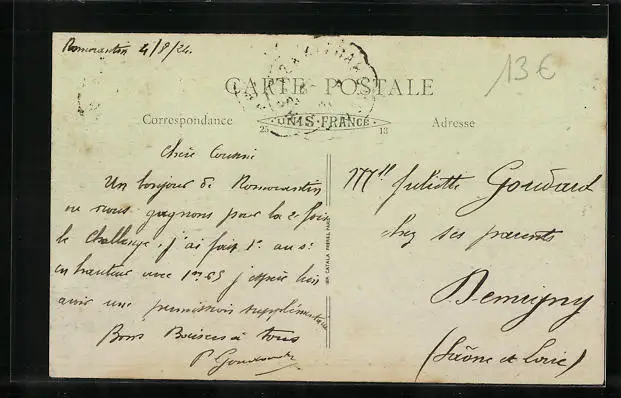 Romorantin 4/8/24.
13 €
CARTE POSTALE
Correspondance
UNIS-FRANCE
25 13
Adresse
Chère Cousine
Un bonjour de Romorantin
ou nous gagnons pour la 2e fois
le challenge, j'ai fait 1er au s.
en hauteur avec 1m65 j'espère bien
avoir une permission supplémentaire
Bons Baisers à tous
P. 
IMP. CATALA FRÈRES, PARIS
Mlle Juliette Goudard
chez ses parents
Demigny
(Saône et Loire)